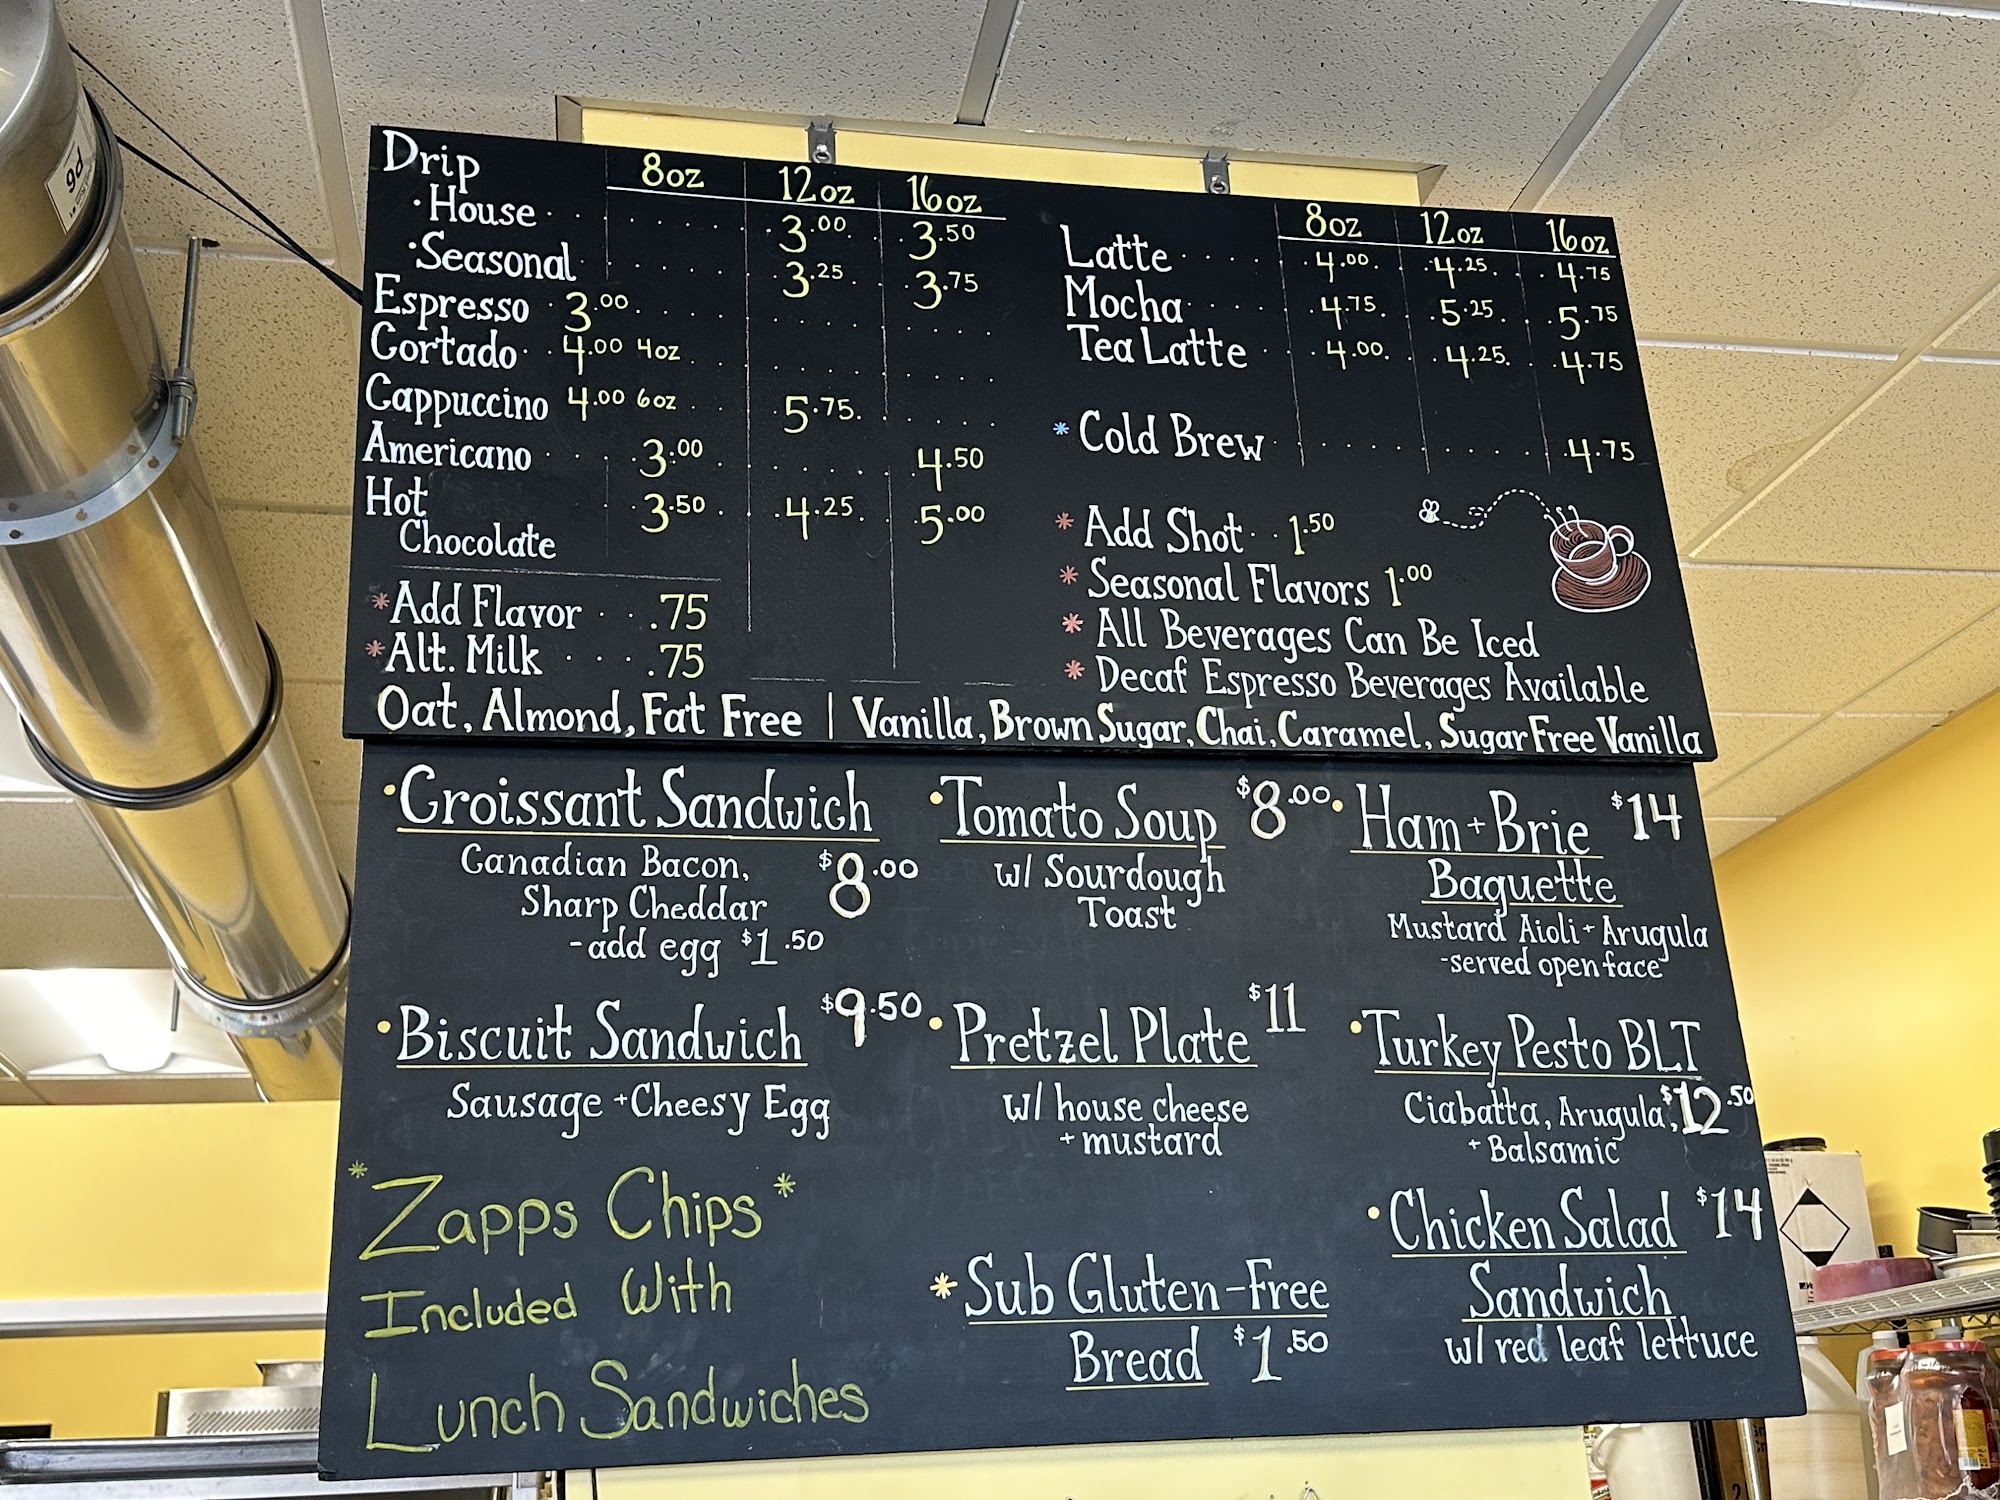 Drip 8oz 12oz 16oz
•House 3.00 3.50
•Seasonal 3.25 3.75
Espresso 3.00
Cortado 4.00 4oz
Cappuccino 4.00 6oz 5.75
Americano 3.00 4.50
Hot 3.50 4.25 5.00
Chocolate
*Add Flavor .75
*Alt. Milk .75
8oz 12oz 16oz
Latte 4.00 4.25 4.75
Mocha 4.75 5.25 5.75
Tea Latte 4.00 4.25 4.75
*Cold Brew 4.75
*Add Shot 1.50
*Seasonal Flavors 1.00
*All Beverages Can Be Iced
*Decaf Espresso Beverages Available
Oat, Almond, Fat Free | Vanilla, Brown Sugar, Chai, Caramel, Sugar Free Vanilla
•Croissant Sandwich
Canadian Bacon, $8.00
Sharp Cheddar
-add egg $1.50
•Biscuit Sandwich $9.50
Sausage + Cheesy Egg
*Zapps Chips*
Included With
Lunch Sandwiches
•Tomato Soup $8.00
w/ Sourdough
Toast
•Pretzel Plate $11
w/ house cheese
+ mustard
*Sub Gluten-Free
Bread $1.50
•Ham + Brie $14
Baguette
Mustard Aioli + Arugula
-served open face
•Turkey Pesto BLT
Ciabatta, Arugula, $12.50
+ Balsamic
•Chicken Salad $14
Sandwich
w/ red leaf lettuce